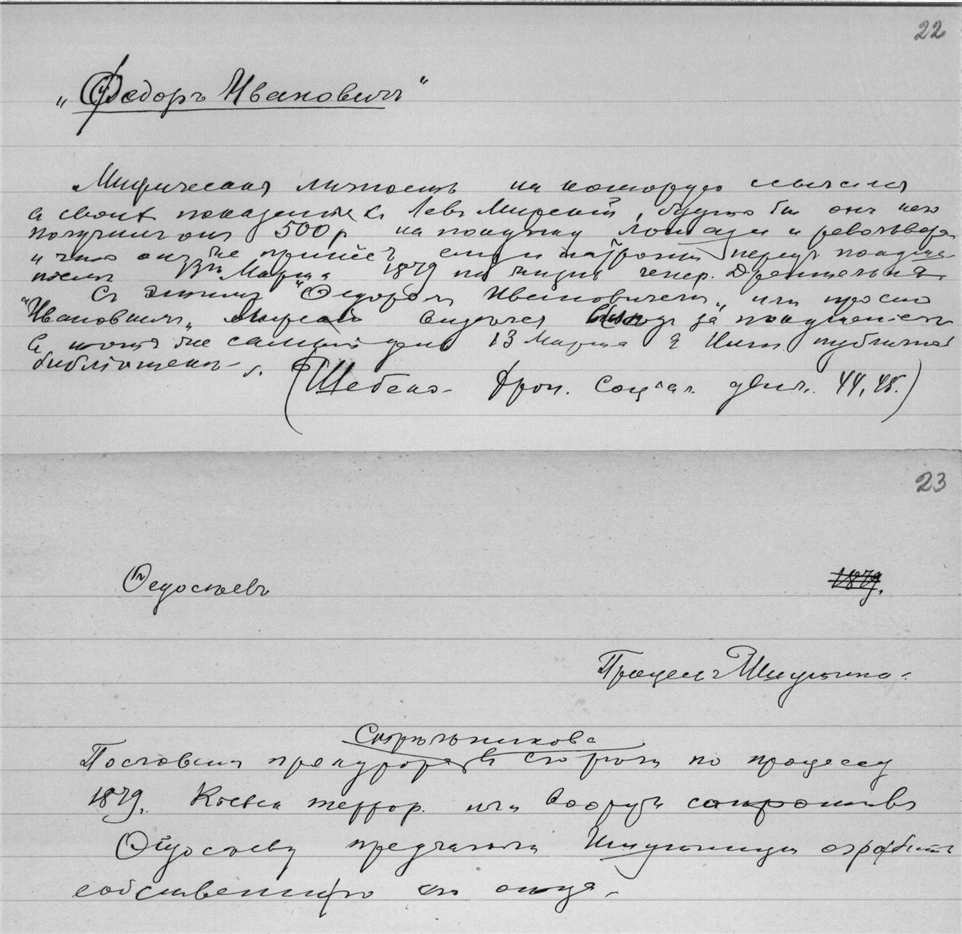 22
„Федоръ Ивановичъ"
Мифическая личность на которую ссылался
въ своихъ показаніяхъ Левъ Мирскій, будто бы онъ него
получилъ онъ 500 р на покупку лошади и револьвера
и что онъ же принесъ ему и патроны передъ
13 Марта 1879 на жизнь генер. Дрентельна
Съ этимъ „Федоромъ Ивановичемъ„ или просто
„Ивановичемъ„ Мирскій видѣлся за покушеніемъ
въ тотъ же самый день 13 Марта в Имп публичной
библіотекѣ
(Шебеко Хрон. Соціал. движ. 44, 45.)
23
Федосѣевъ
1879.
Процессъ Шидловскаго
Стрѣльникова
По словамъ прокурора въ по процессу
1879. Кіевск террор. или Вооруж сопротивл
Федосѣеву предлагали ограбить
собственнаго отца.